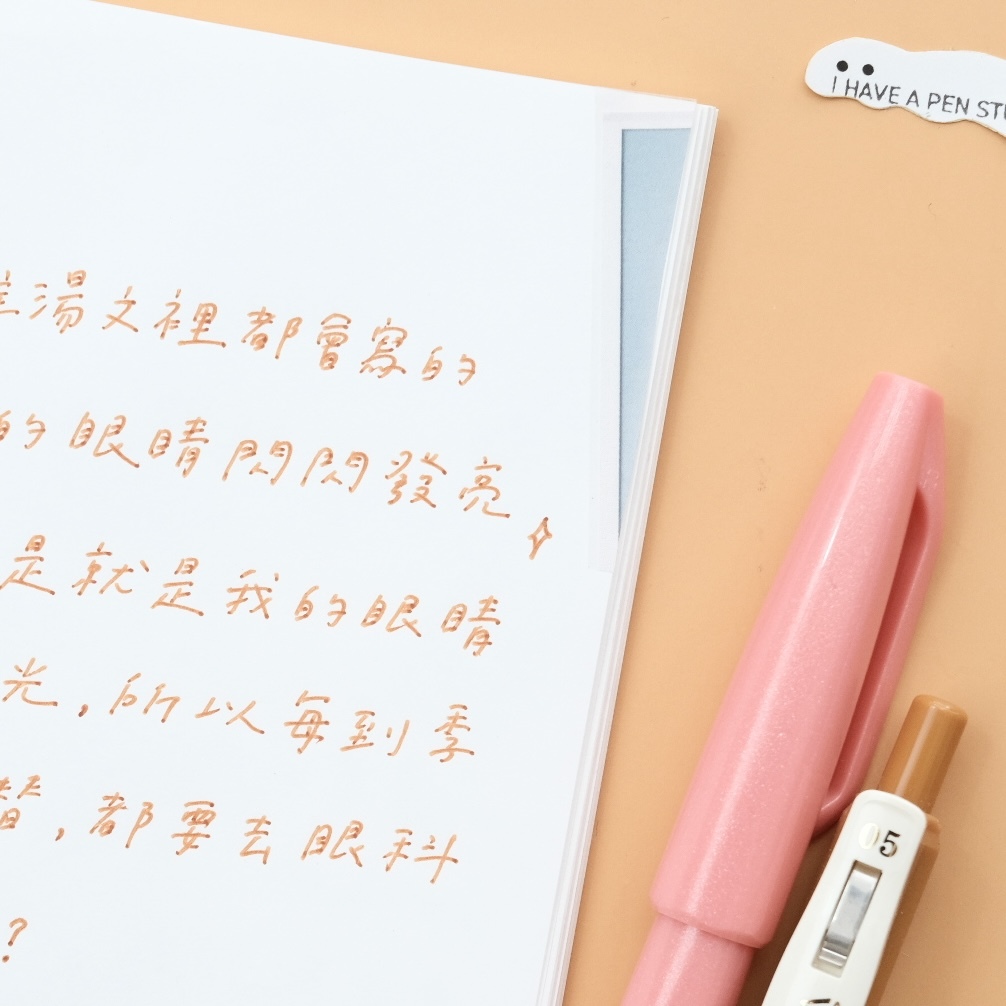 I HAVE A PEN
湯文裡都會寫的
的眼睛閃閃發亮
是就是我的眼睛
光，所以每到季
替，都要去眼科
？
05